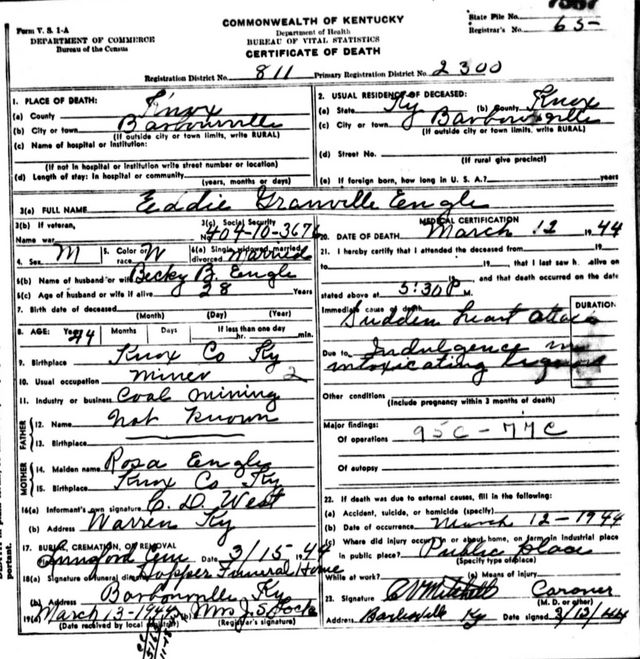 Form V. S. 1-A
DEPARTMENT OF COMMERCE
Bureau of the Census
COMMONWEALTH OF KENTUCKY
Department of Health
BUREAU OF VITAL STATISTICS
CERTIFICATE OF DEATH
State File No.
Registrar's No. 65-
Registration District No. 811 Primary Registration District No. 2300
1. PLACE OF DEATH:
(a) County Knox
(b) City or town Barbourville
(If outside city or town limits, write RURAL)
(c) Name of hospital or institution:
(If not in hospital or institution write street number or location)
(d) Length of stay: In hospital or community
(years, months or days)
2. USUAL RESIDENCE OF DECEASED:
(a) State Ky (b) County Knox
(c) City or town Barbourville
(If outside city or town limits, write RURAL)
(d) Street No.
(If rural give precinct)
(e) If foreign born, how long in U. S. A.? years
3(a) FULL NAME Eddie Granville Engle
3(b) If veteran,
Name war
3(c) Social Security
No. 404-10-3676
4. Sex M 5. Color or race W 6(a) Single, widowed, married, divorced Married
6(b) Name of husband or wife Becky B. Engle
6(c) Age of husband or wife if alive 28 Years
7. Birth date of deceased
(Month) (Day) (Year)
8. AGE: Years 44 Months Days If less than one day
hr. min.
9. Birthplace Knox Co Ky
10. Usual occupation Miner 2
11. Industry or business Coal mining
FATHER
12. Name Not Known
13. Birthplace
MOTHER
14. Maiden name Rosa Engle
15. Birthplace Knox Co Ky
16(a) Informant's own signature C. D. West
(b) Address Warren Ky
17. BURIAL, CREMATION, OR REMOVAL
Date 3/15 1944
18(a) Signature of funeral director Hopper Funeral Home
(b) Address Barbourville Ky
19(a) March 13-1944 Mrs J S Lock
(Date received by local registrar) (Registrar's signature)
MEDICAL CERTIFICATION
20. DATE OF DEATH March 12 1944
21. I hereby certify that I attended the deceased from 19
19 , that I last saw h. alive on
19 , and that death occurred on the date
stated above at 5:30 P m.
DURATION
Immediate cause of death
Sudden heart attack
Due to Indulgence in
intoxicating liquors
Other conditions
(Include pregnancy within 3 months of death)
Major findings:
Of operations 95C-77C
Of autopsy
22. If death was due to external causes, fill in the following:
(a) Accident, suicide, or homicide (specify)
(b) Date of occurrence March 12-1944
(c) Where did injury occur? In or about home, on farm in industrial place
in public place? Public place
(Specify type of place)
While at work? (e) Means of injury
23. Signature C V Mitchell Coroner
(M. D. or other)
Address Barbourville Ky Date signed 3/13/44